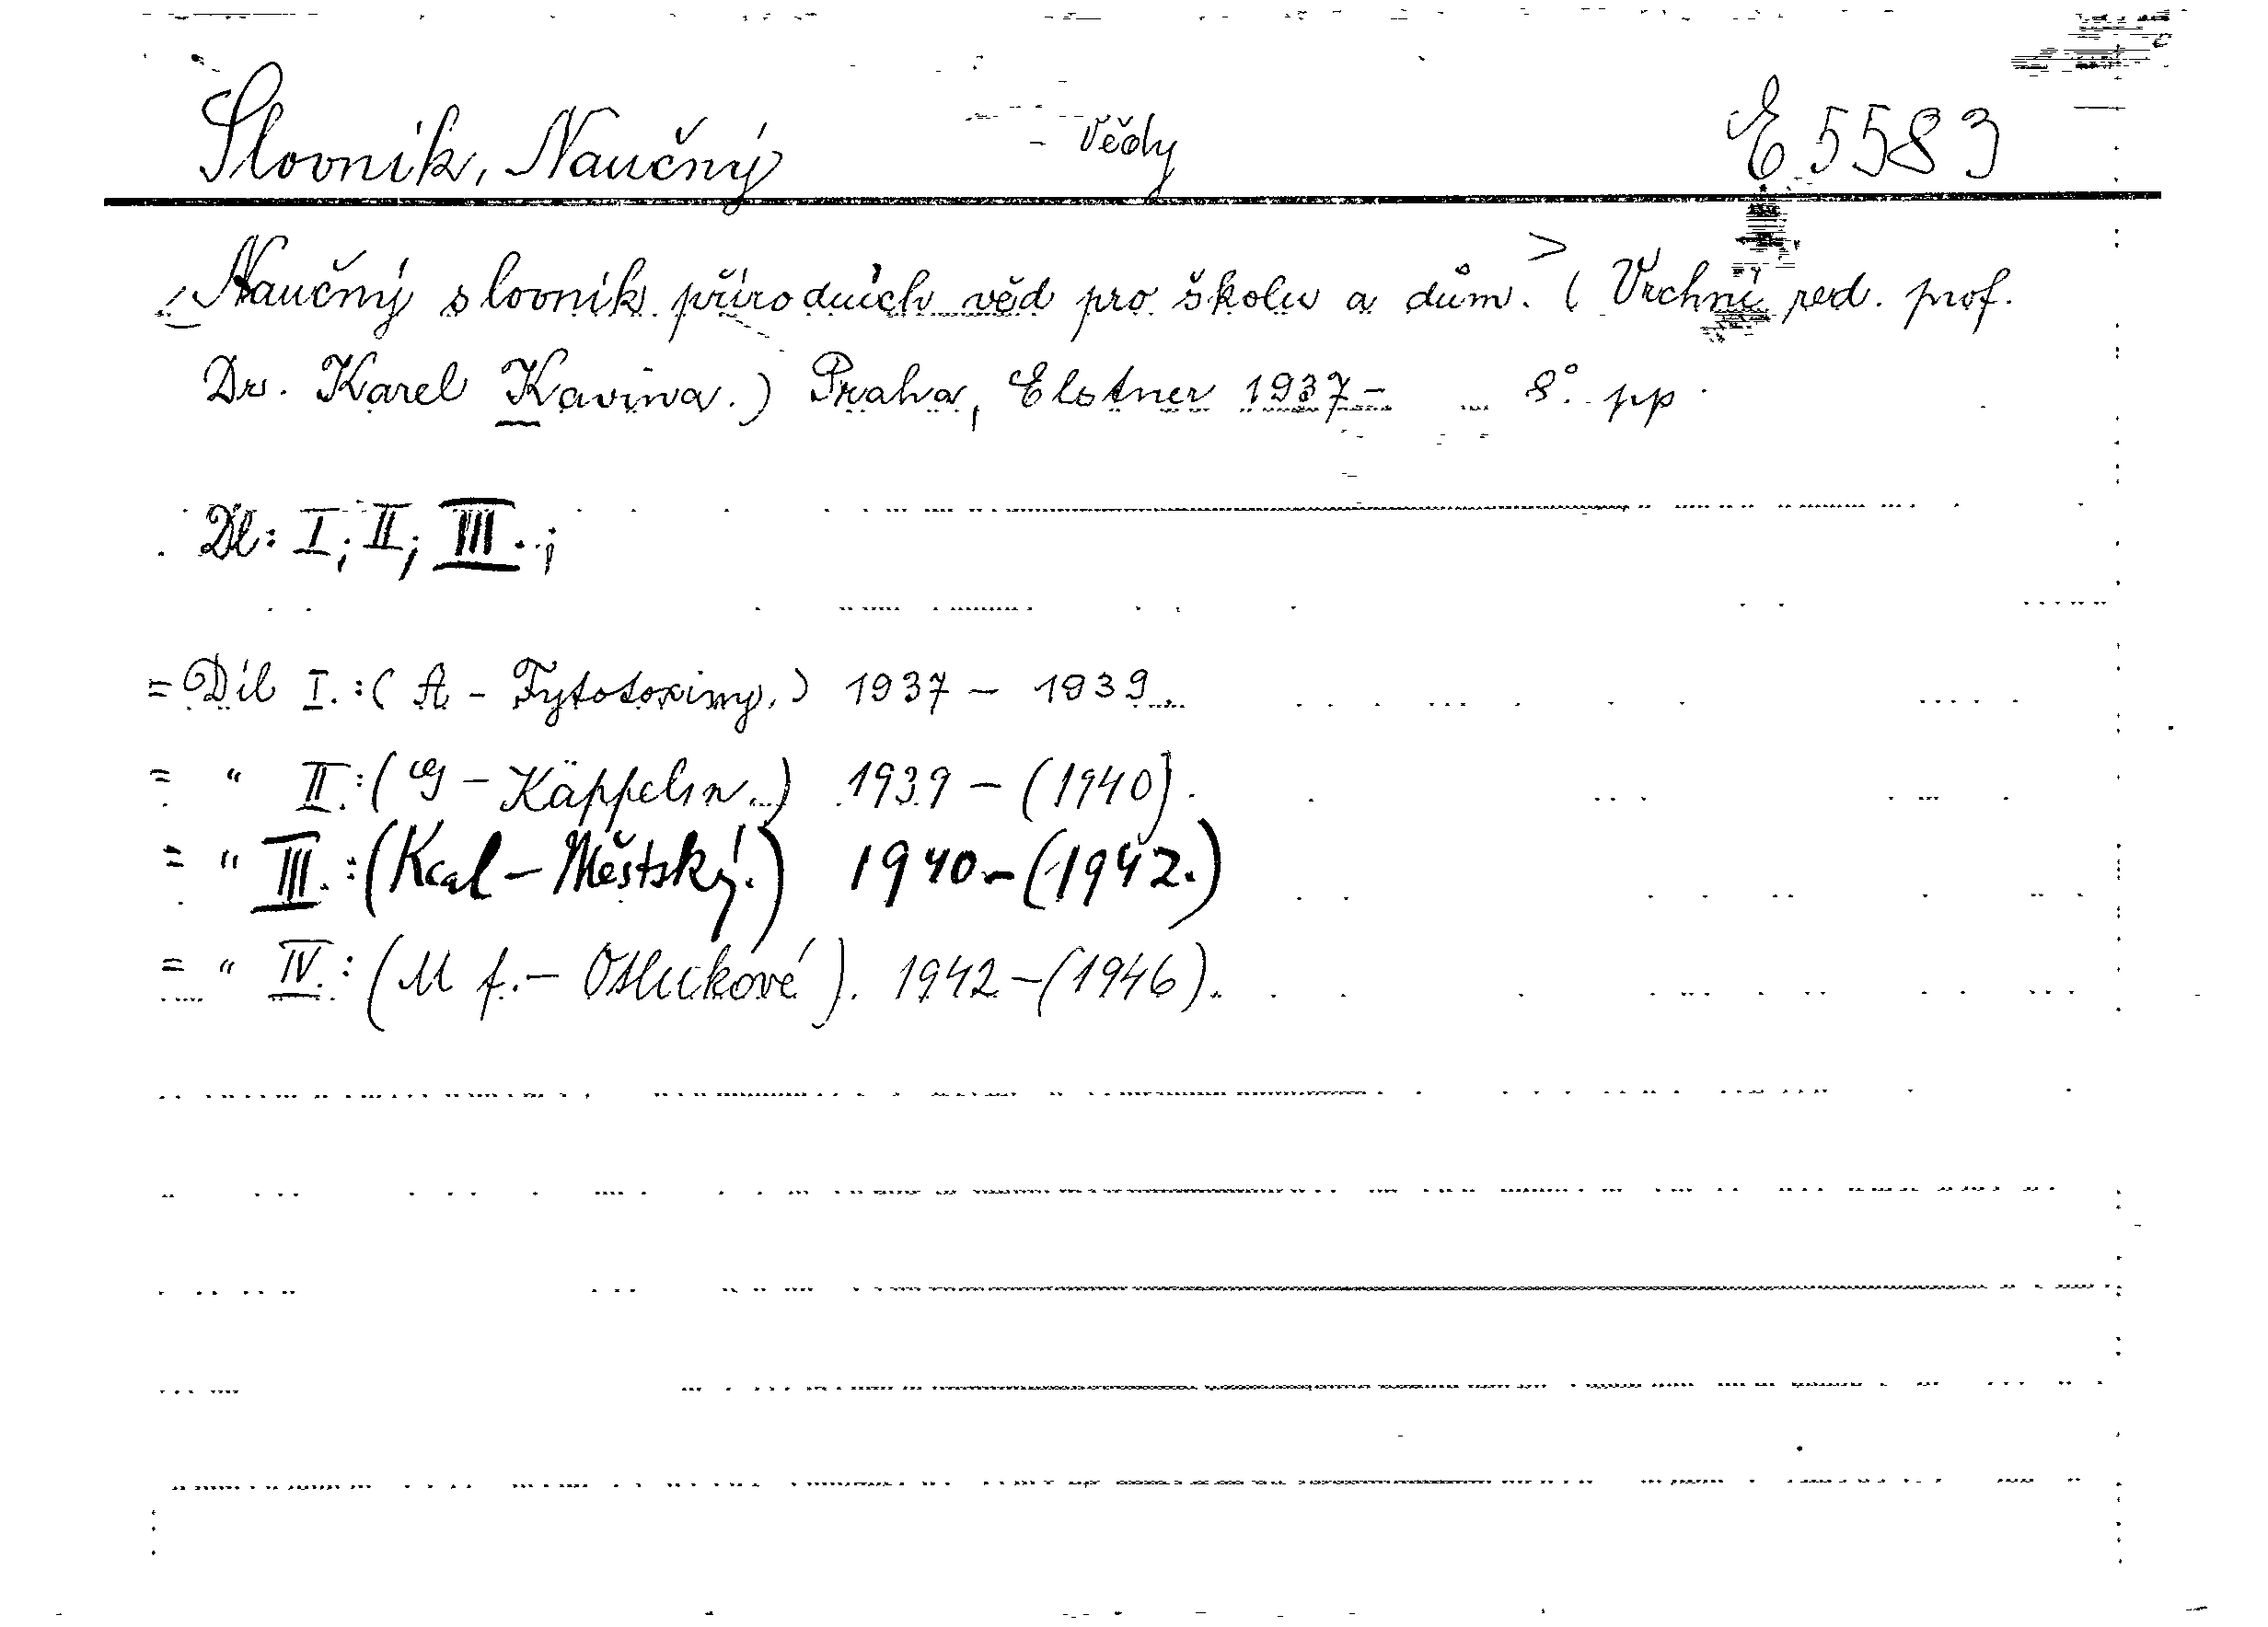 Slovník, Naučný - Vědy E 5583
Naučný slovník přírodních věd pro školu a dům.> (Vrchní red. prof.
Dr. Karel Kavina.) Praha, Elstner 1937- 8°. pp.
Díl: I; II; III.;
= Díl I.: (A - Fytotoxiny.) 1937 - 1939.
= " II.: (G - Käppelin.) 1939 - (1940).
= " III.: (Kcal - Městský.) 1940 - (1942.)
= " IV.: (M f. - ) 1942 - (1946).